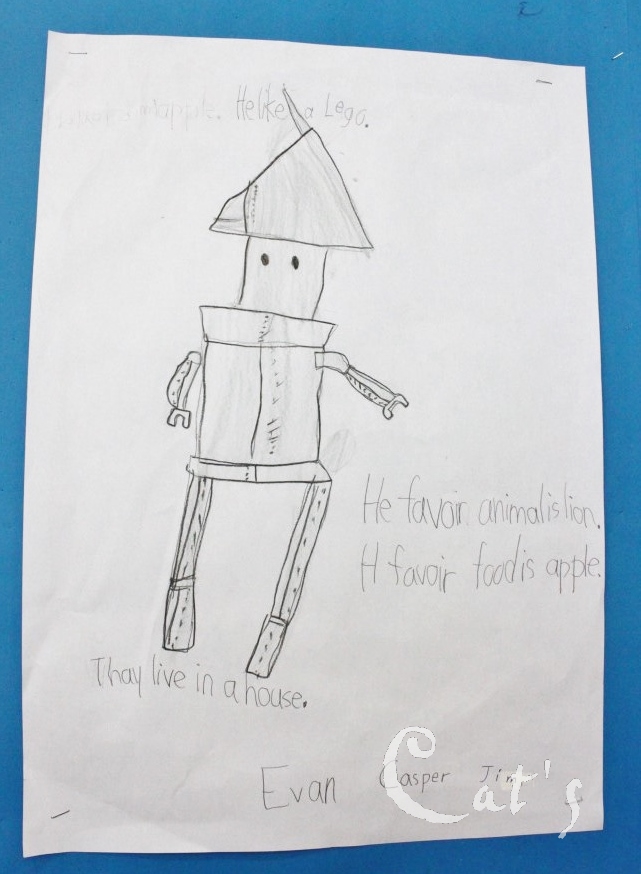 apple. He like a Lego.
He favoir animal is lion.
H favoir food is apple.
Thay live in a house.
Evan Casper Jim
Cat's